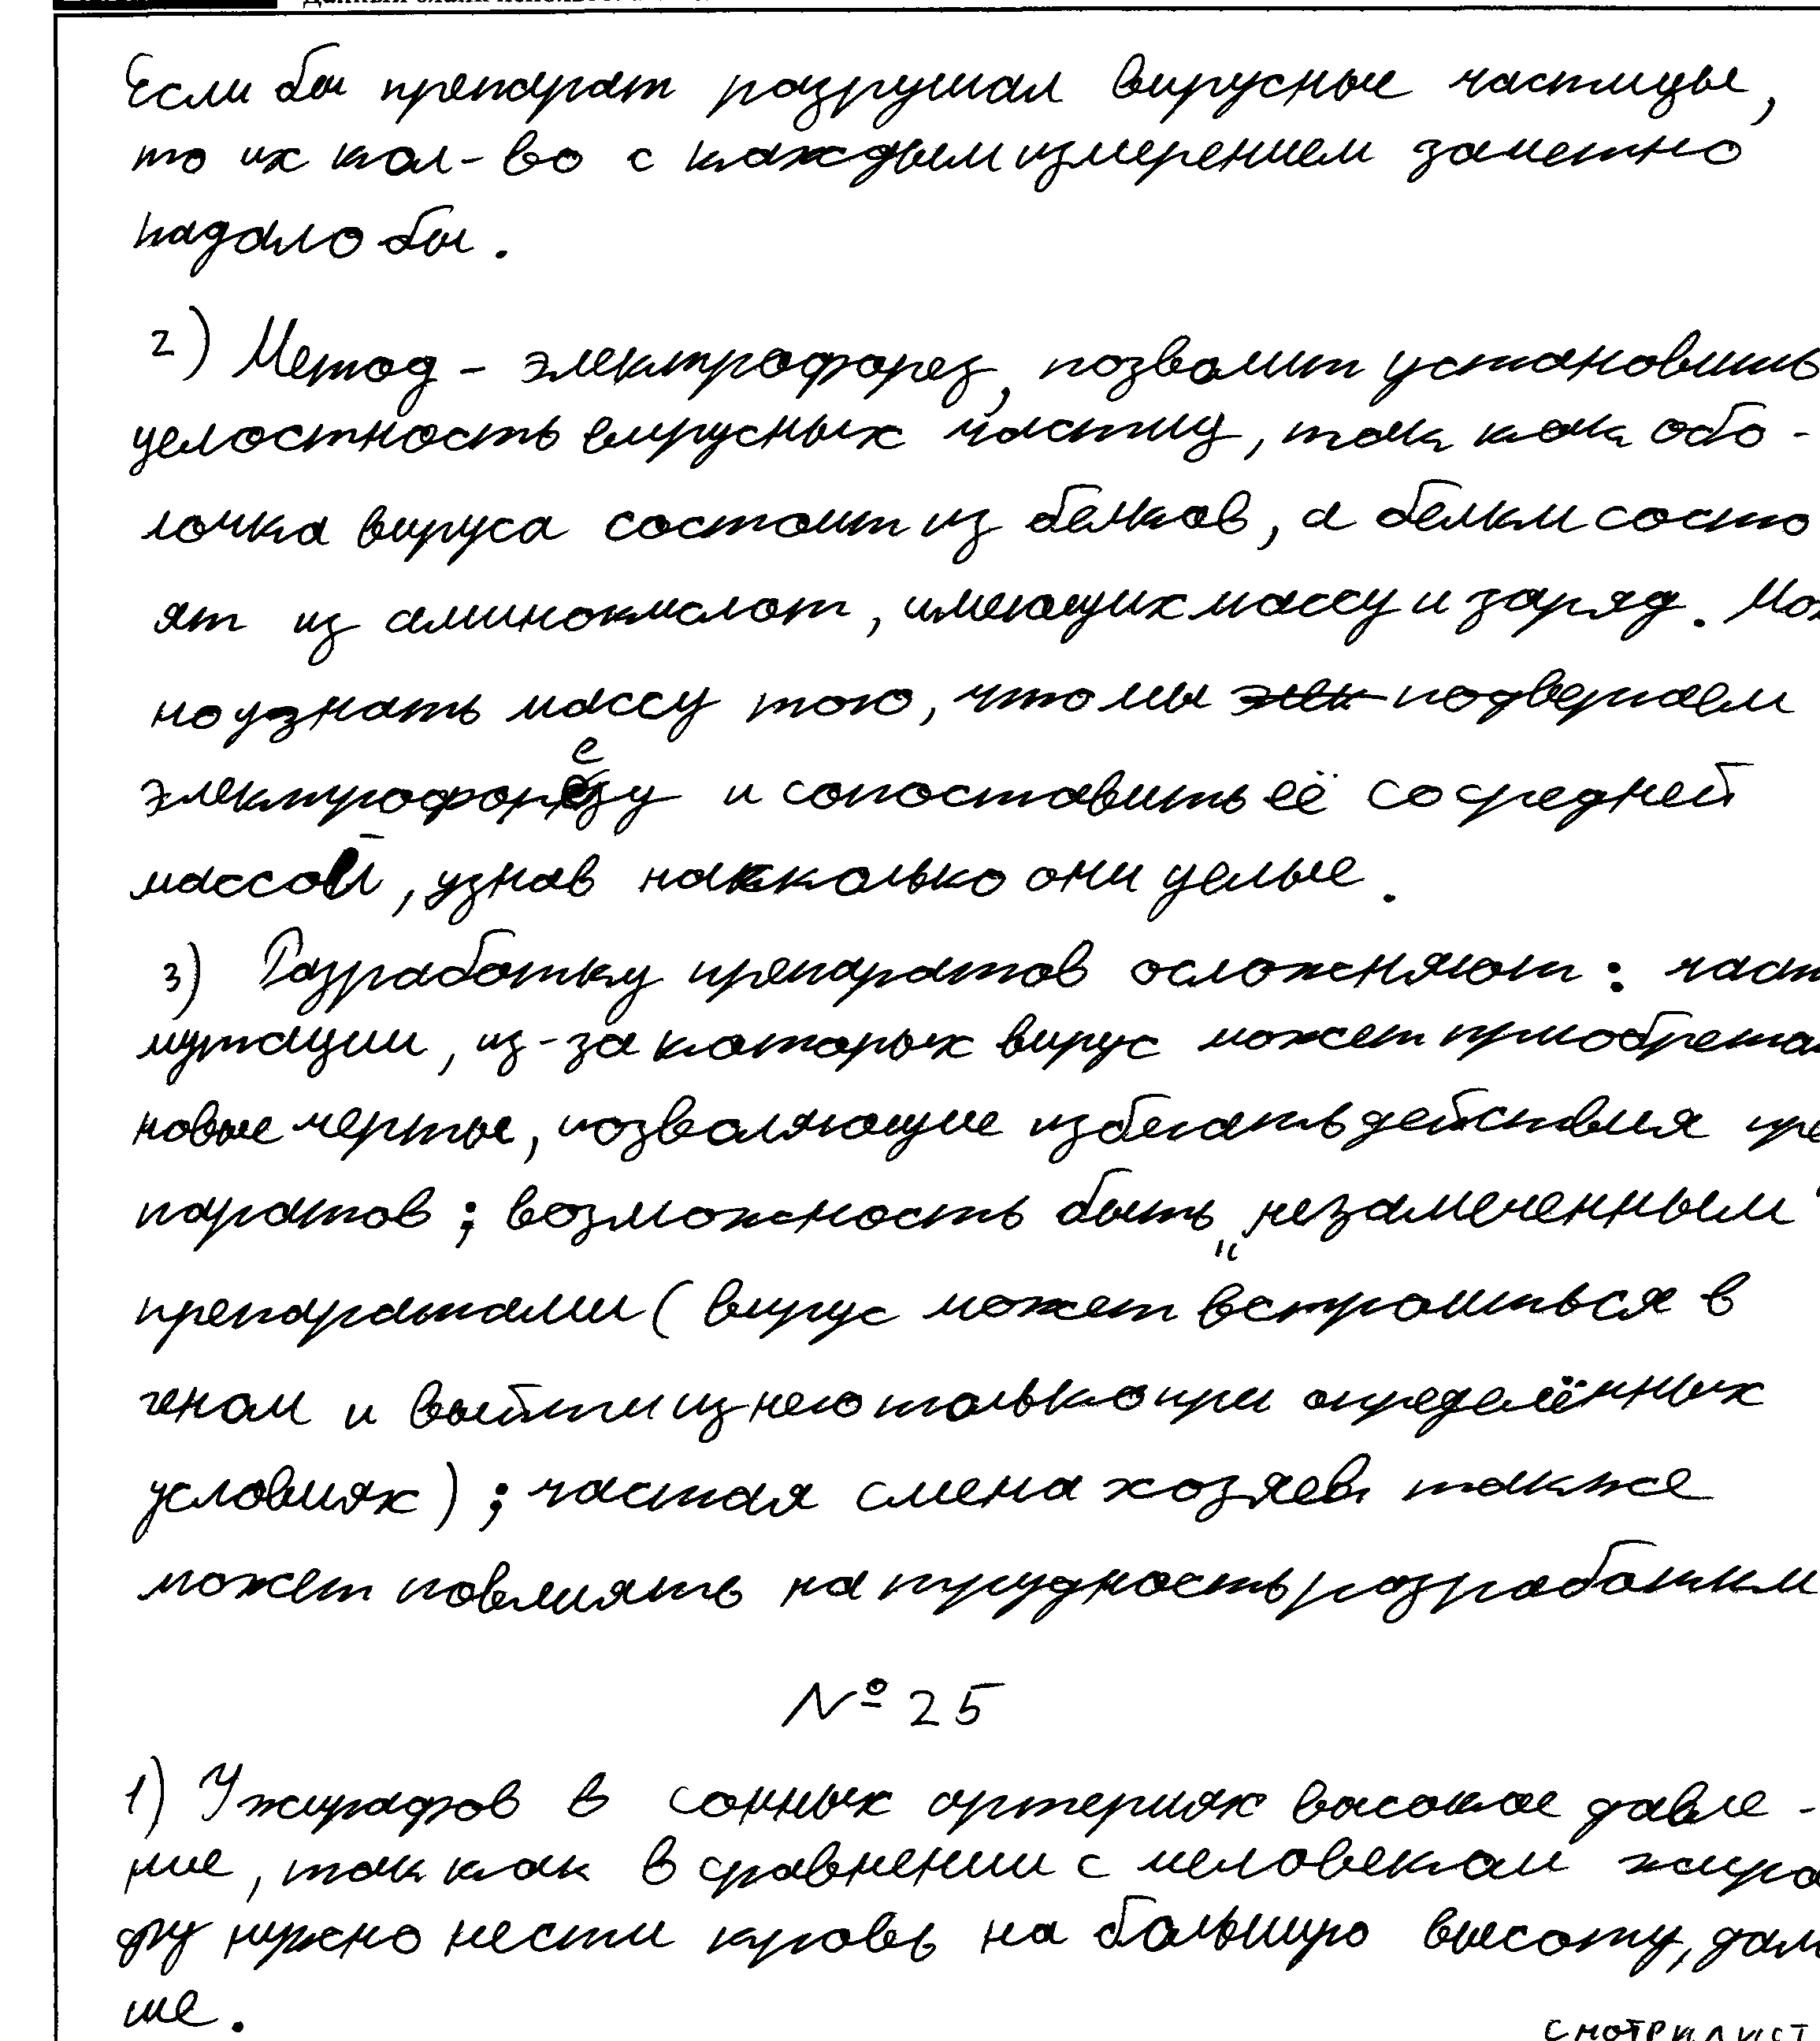 Если бы препарат разрушал вирусные частицы,
то их кол-во с каждым измерением заметно
падало бы.
2) Метод - электрофорез, позволит установить
целостность вирусных частиц, так как обо-
лочка вируса состоит из белков, а белки состо
ят из аминокислот, имеющих массу и заряд. Мож
но узнать массу того, что мы подвергаем
электрофорезу и сопоставить её со средней
массой, узнав насколько они целые.
3) Разработку препаратов осложняют: част
мутации, из-за которых вирус может приобретат
новые черты, позволяющие избегать действия пре
паратов; возможность быть „незамеченным"
препаратами (вирус может встроиться в
геном и выйти из него только при определённых
условиях); частая смена хозяев также
может повлиять на трудность разработки
№ 25
1) У жирафов в сонных артериях высокое давле-
ние, так как в сравнении с человеком жира
фу нужно нести кровь на большую высоту, даль
ше.
СМОТРИ ЛИСТ